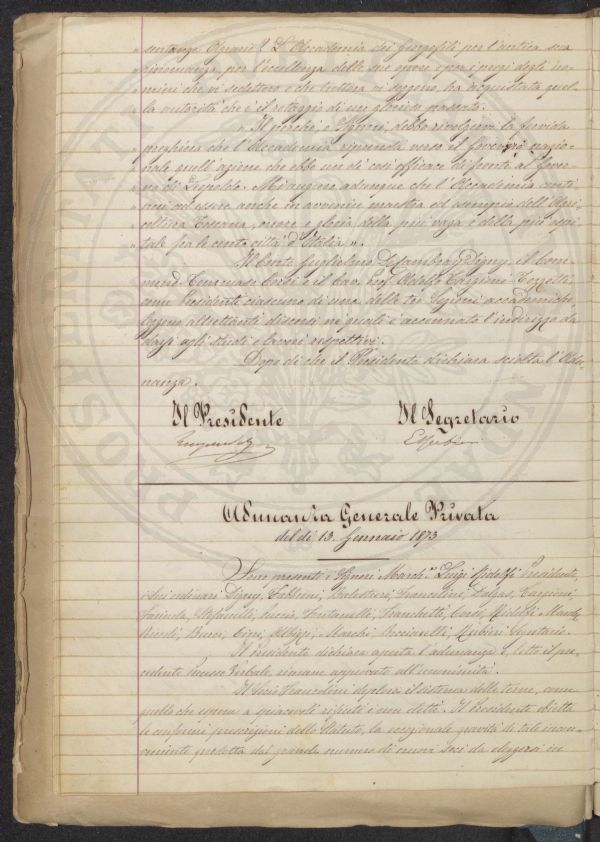 " sentanza Agraria? L'Accademia dei Georgofili per l'antica sua
" rinomanza, per l'eccellenza delle sue opere e per i pregi degli uo-
" mini che vi sedettero e che tuttora vi seggono, ha acquistata quel-
" la autorità che è il retaggio di un glorioso passato.
" Il perchè, o Signori, debbo rivolgervi la fervida
" preghiera che l'Accademia riprenda verso il Governo nazio-
" nale quell'azione che ebbe un dì così efficace di fronte al Gover-
" no di Leopoldo. Mi auguro adunque che l'Accademia conti-
" nui ad essere anche in avvenire maestra ed esempio dell'Agri-
" coltura Toscana, onore e gloria della più vaga e della più
" tale fra le cento città d'Italia".
Il Conte Guglielmo De Cambray Digny, il Com-
mend. Tommaso Corsi e il Cav. Prof. Adolfo Targioni Tozzetti,
come Presidenti ciascuno di una delle tre Sezioni accademiche,
leggono altrettanti discorsi nei quali è accennato l'indirizzo da
darsi agli studi e lavori respettivi.
Dopo di che il Presidente dichiara sciolta l'Adu-
nanza.
Il Presidente Il Segretario
E Rubieri
Adunanza Generale Privata
del dì 13 Gennaio 1873
Sono presenti i Signori March.se Luigi Ridolfi Presidente,
i Soci ordinari Digny, Fabbroni, Balestrieri, Franceschini, Dalgas, Targioni,
Stefanelli, Fontanelli, Franchetti, Corsi, Ridolfi March.
Niccolò, Bucci, Cini, Albizzi, Marchi, Rubieri Segretario.
Il Presidente dichiara aperta l'adunanza e, letto il pre-
cedente Processo Verbale, rimane approvato all'unanimità.
Il Socio Franceschini deplora il sistema delle terne, come
quello che espone a spiacevoli rifiuti i non eletti. Il Presidente
le conformi prescrizioni dello Statuto, la eccezionale gravità di tale incon-
veniente prodotta dal grande numero di nuovi Soci da eleggersi in